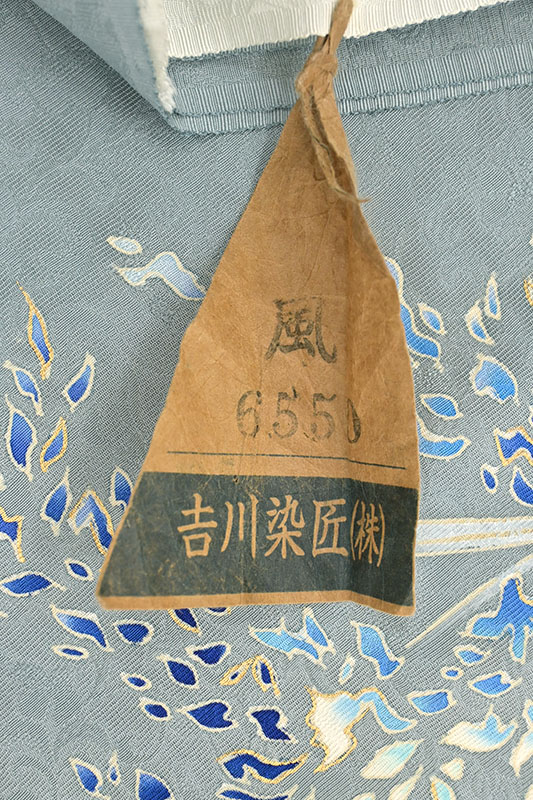 風
6550
吉川染匠㈱